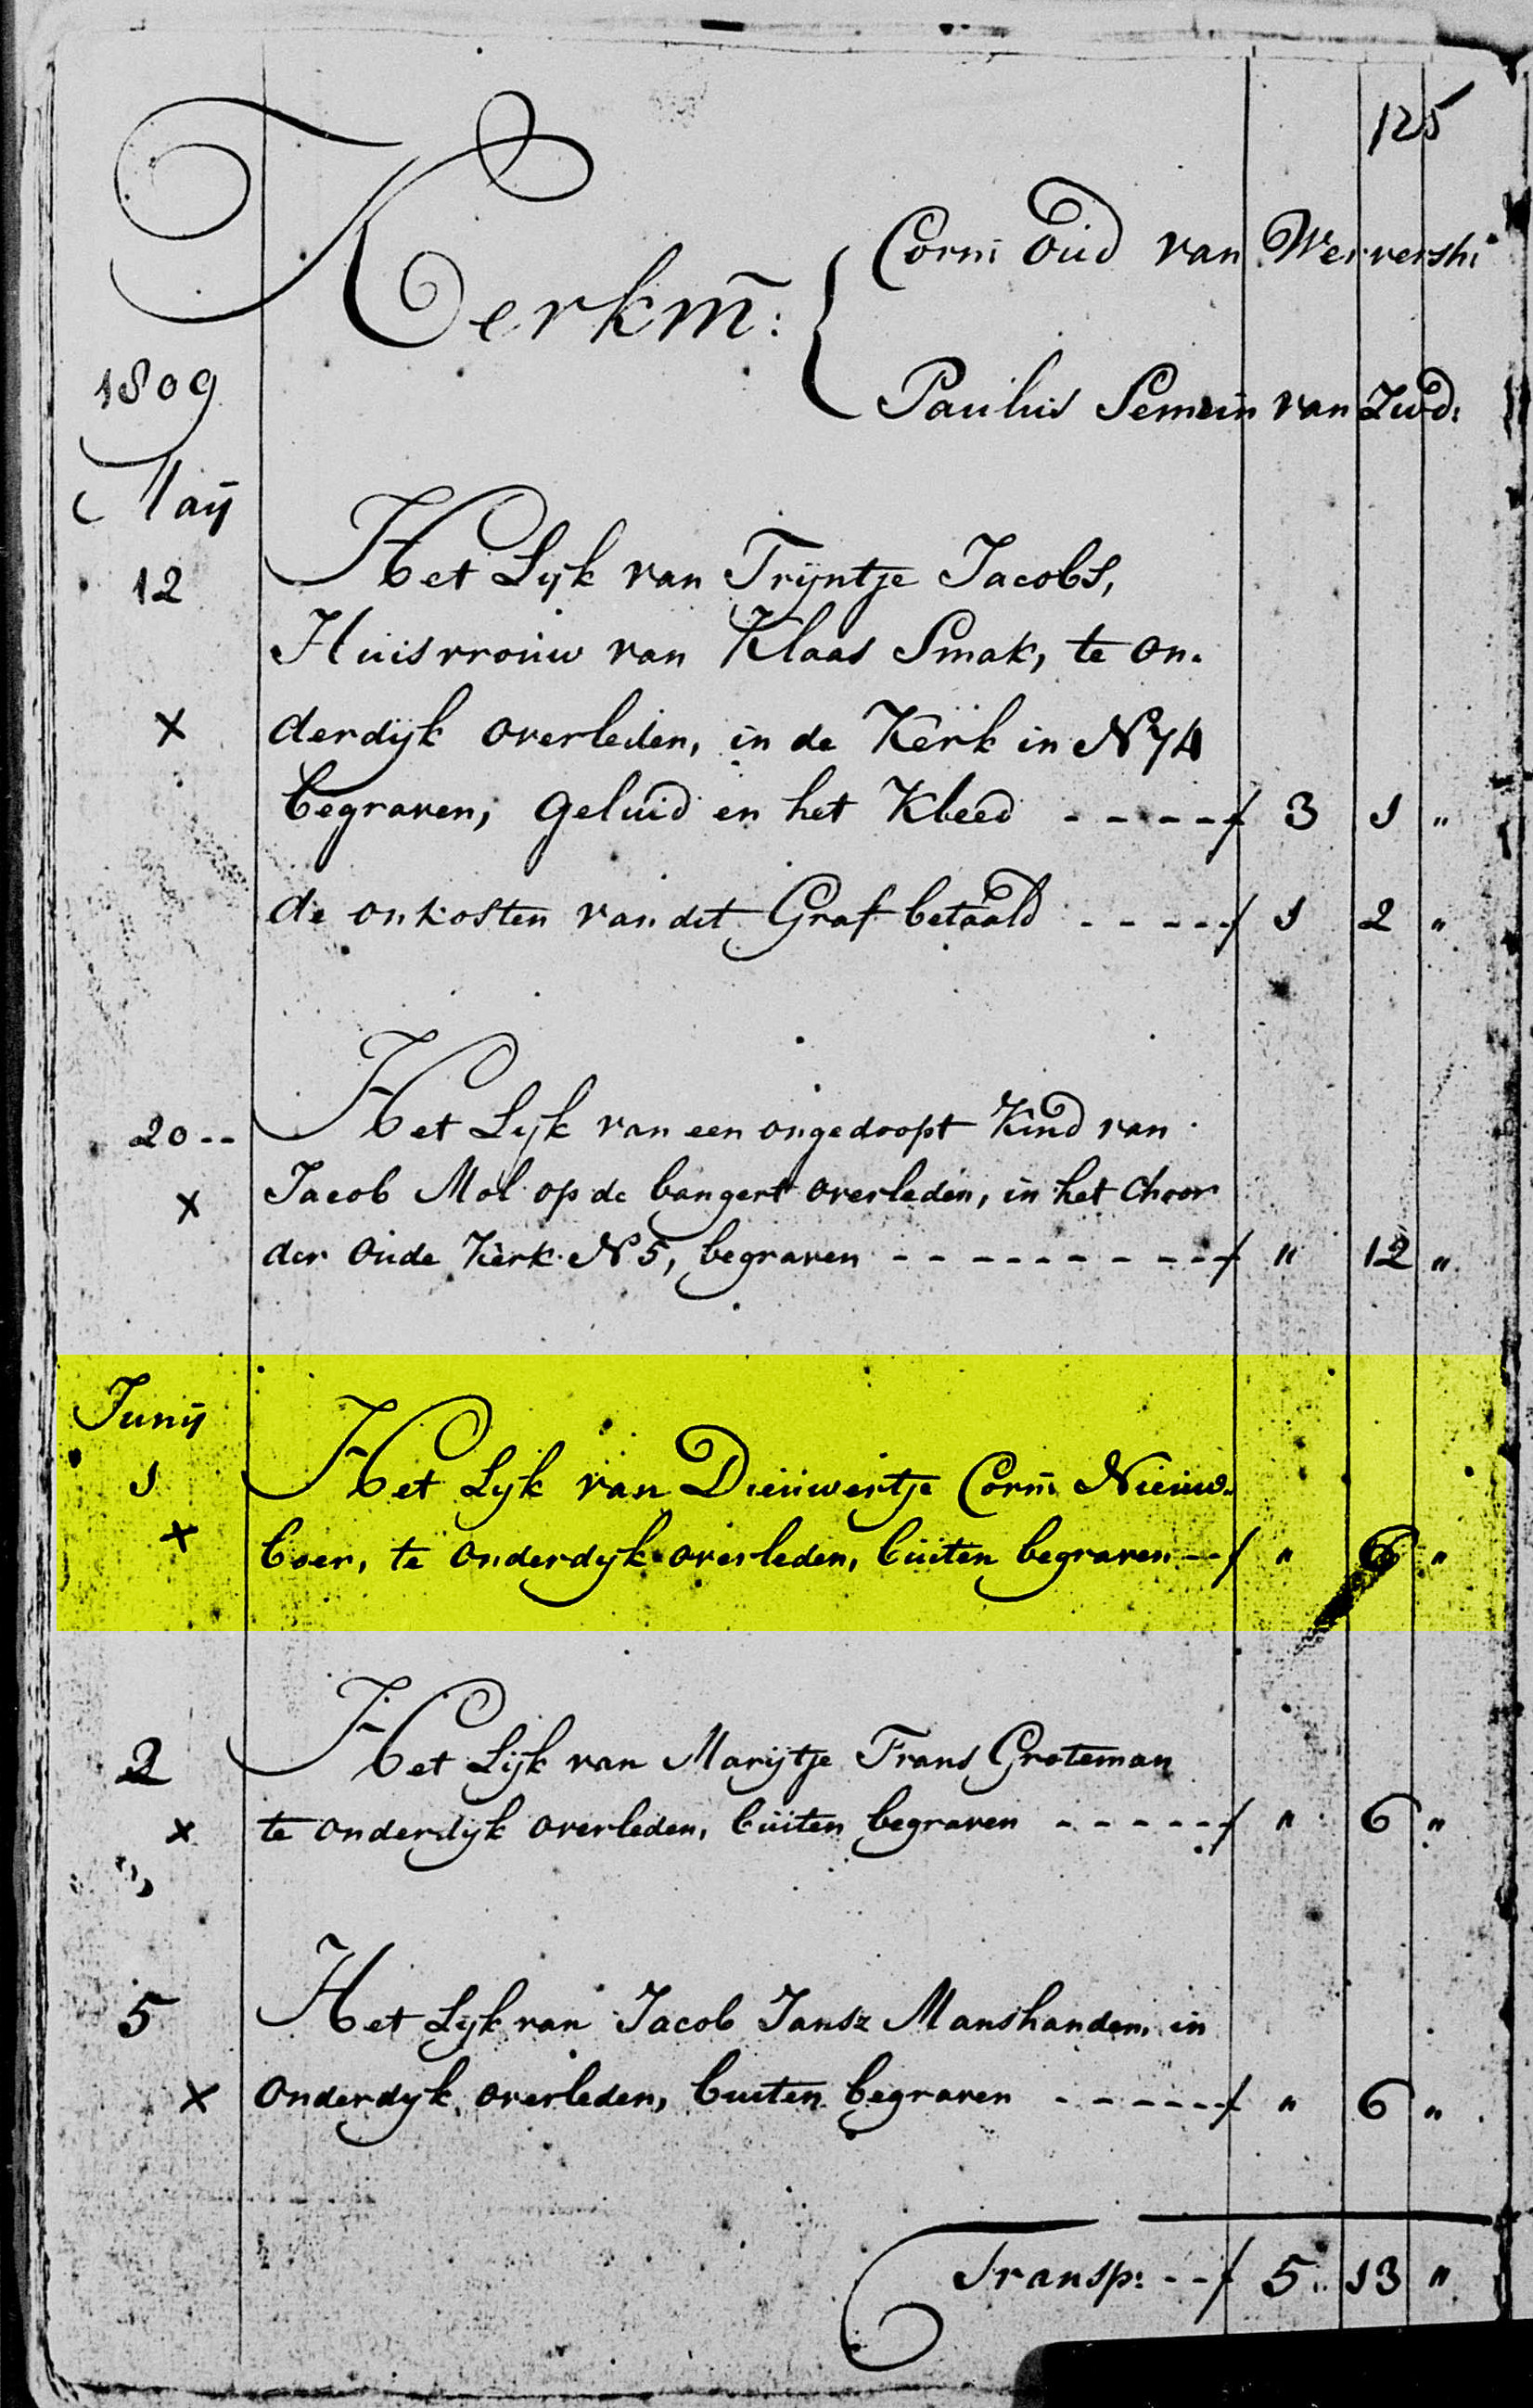 125
Kerkm̄: { Corns Oud van Wervershs
Paulus Semein van Zwd:
1809
Maij
12 Het Lijk van Trijntje Jacobs,
Huisvrouw van Klaas Smak, te on-
x derdijk overleden, in de Kerk in No 74
begraven, geluid en het Kleed - - - - - f 3 1 "
de onkosten van dit Graf betaald - - - - f 1 2 "
20 -- Het Lijk van een ongedoopt Kind van
x Jacob Mol op de bangert overleden, in het Choor
der Oude Kerk No 5, begraven - - - - - - - - - - f " 12 "
Junij
1 Het Lijk van Dieuwertje Corns Nieuw-
x boer, te Onderdijk overleden, buiten begraven -- f " 6 "
2 Het Lijk van Marijtje Frans Groteman
x te onderdijk overleden, buiten begraven - - - - - f " 6 "
5 Het Lijk van Jacob Jansz Manshanden, in
x Onderdijk overleden, buiten begraven - - - - - f " 6 "
Transp: - - f 5 13 "